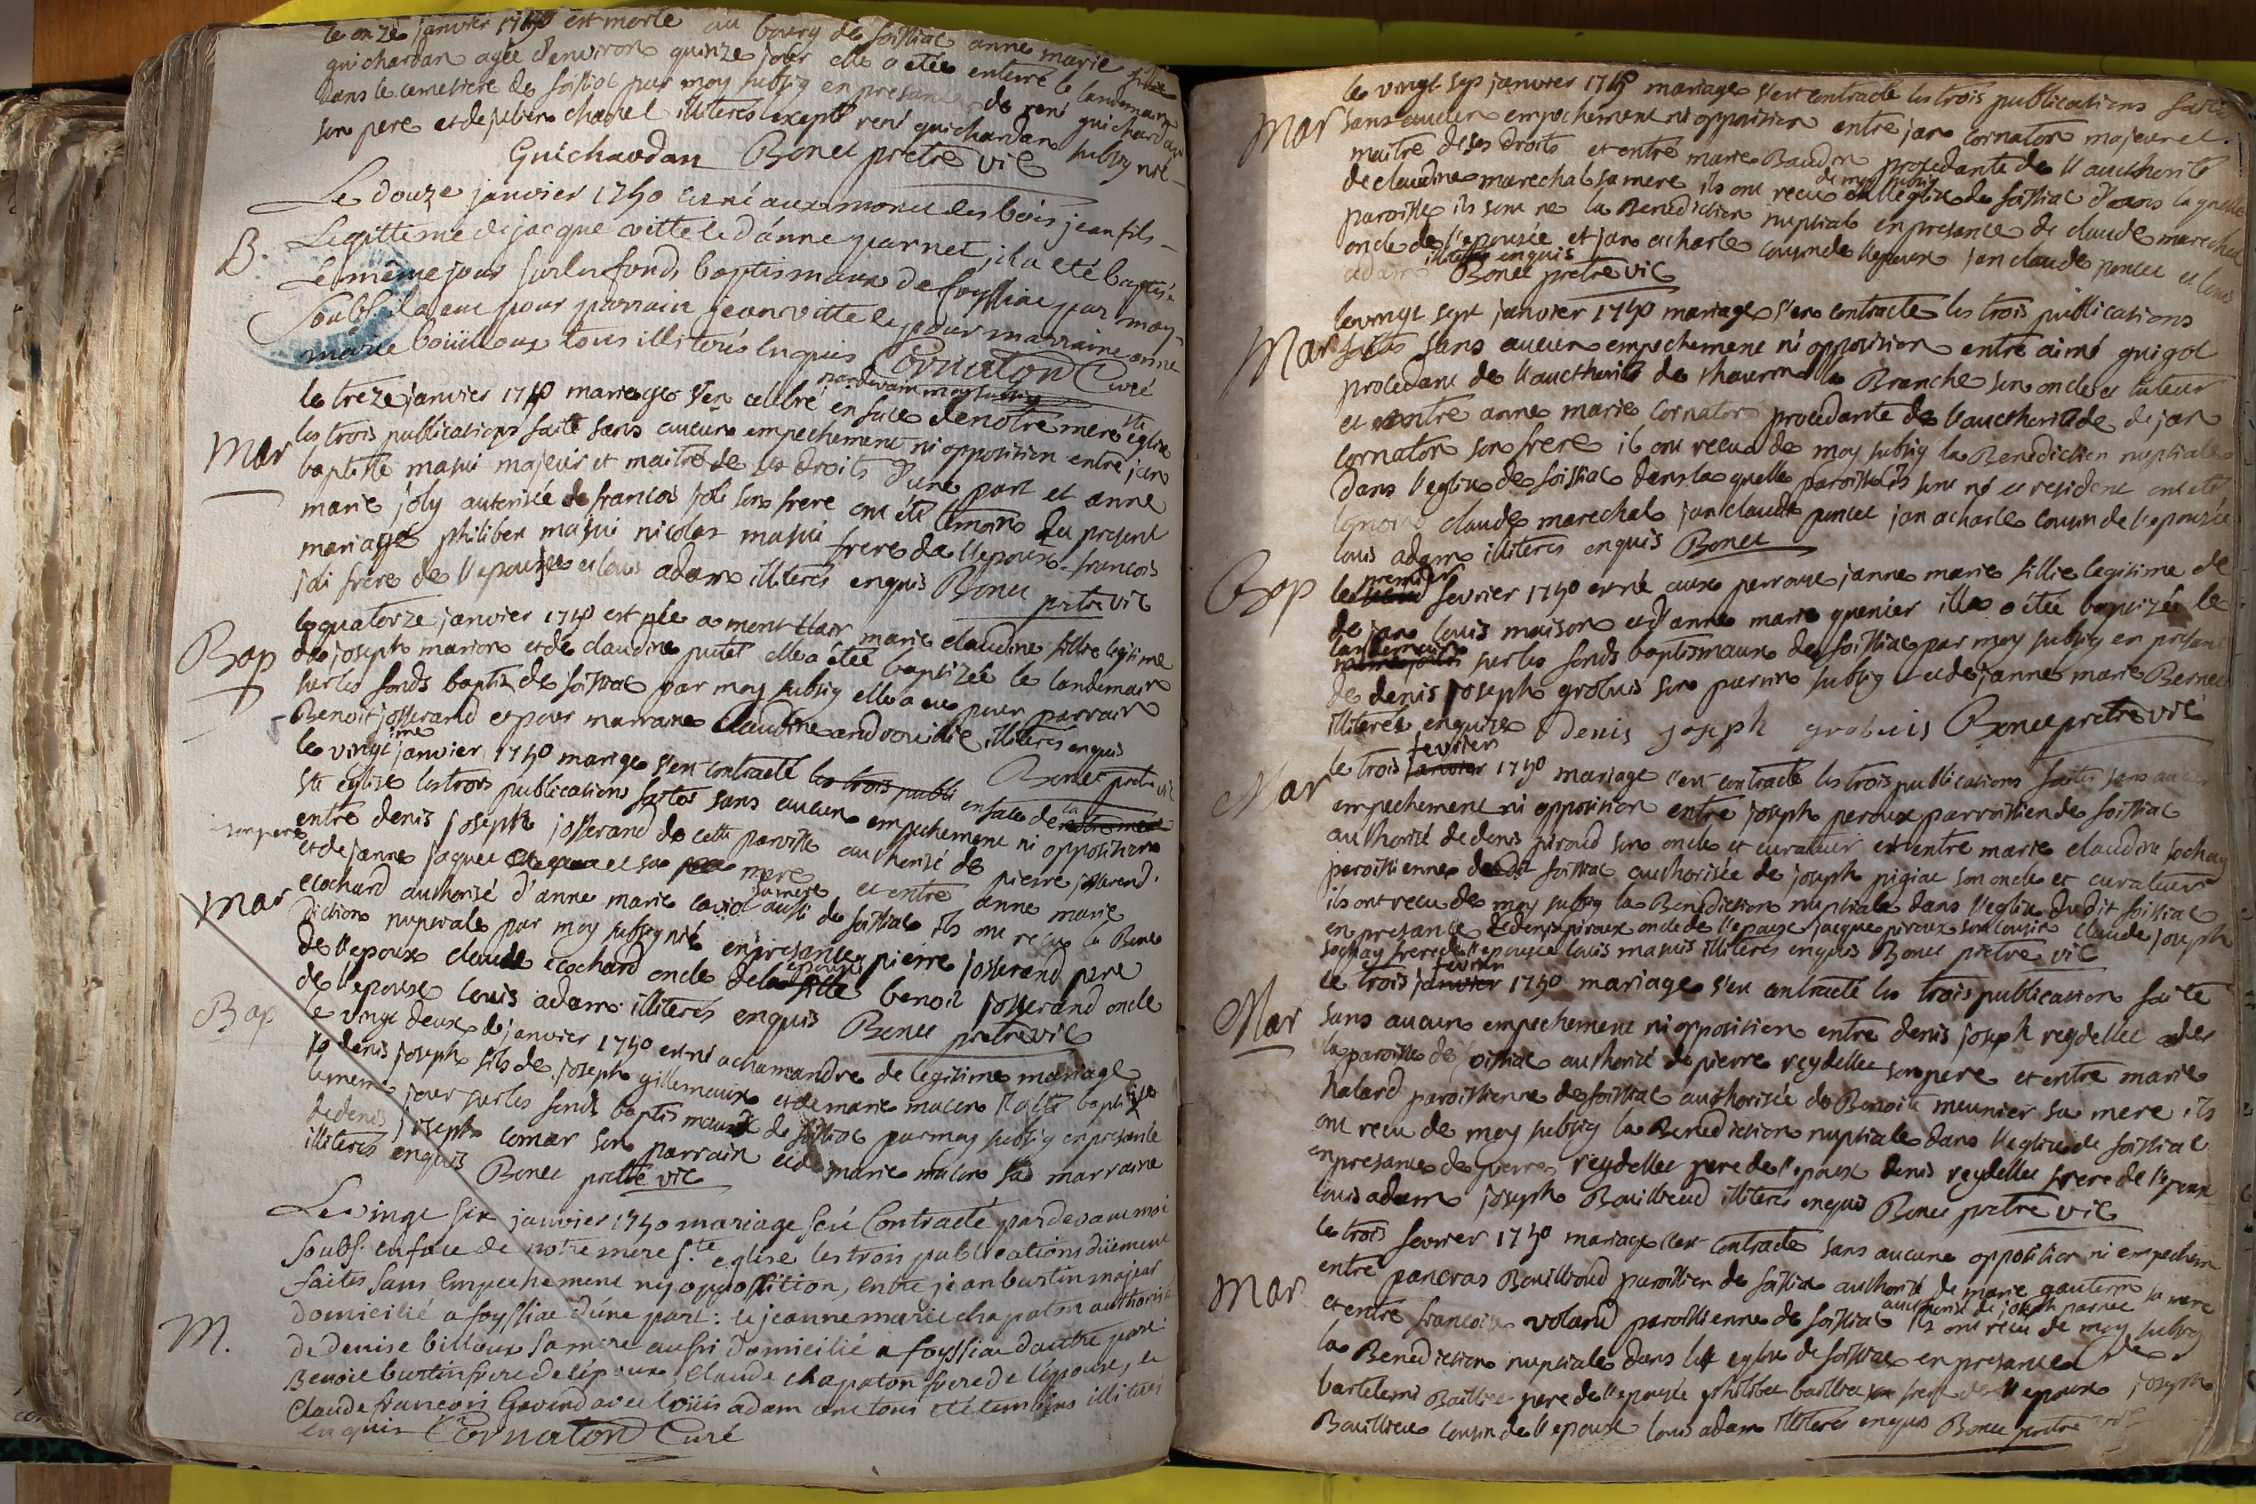 le onze janvier 1740 est morte au bourg de foissiac anne marie fillie
guichardan agée d'environ quinze jour elle a etée enterré le landemain
dans le cemetiere de foissiac par moy subsig en presance de rené guichardan
son pere et de julien chanel illiterés excepté rené guichardan subsigné
Guichardan Bonet pretre vic
Le douze janvier 1740 est né aux monet les bois jean fils
B. Legittime de jacque vittele d'anne guarnet, il a eté baptisé
Le même jour sur les fonds baptismaux de foyssiac par moy
Soubs. il a eut pour parrain jean vittele pour marraine anne
marie boüilloux tous illiterés enquis Cornaton Curé
le treze janvier 1740 mariage s'en celebré pardevant moy subsig en face de notre mere ste eglise
les trois publications faite sans aucun empechement ni opposition entre jan
Mar baptiste masui majeur et maitre de ses droits d'une part et anne
marie joly autorisée de francois joli son frere ont été temoins du present
mariage philibert masui nicolas masui frere de l'epoux francois
joli frere de l'epousée et louis adam illiterés enquis Bonet pretre vic
le quatorze janvier 1740 est née a mont clair marie claudine fillie legitime
Bap de joseph marion et de claudine putet elle a étée baptizée le landemain
sur les fonds baptis de foissiac par moy subsig elle a eu pour parrain
Benoit josserand et pour marraine claudine illiterés enquis
Bonet pretre vic
le vingtime janvier 1740 mariage s'en contracté les trois publi en face de la notre mere
ste eglise les trois publications faites sans aucun empechement ni opposition
entre denis joseph josserand de cette paroisse authorizé de pierre josserand
son pere et de janne jaquet et sa mere et entre anne marie
Mar ecochard authorisé d'anne marie sa mere aussi de foissiac ils ont reçu la Bene
diction nuptiale par moy subsigné en presance pierre josserand pere
de l'epoux claude ecochard oncle de la fille epouse benoit josserand oncle
de l'epoux louis adam illiterés enquis Bonet pretre vic
Bap le vingt deux de janvier 1740 est né a chamandre de legitime mariage
denis joseph fils de joseph gillemaux et de marie macon il a été baptisé
le meme jour sur les fonds baptismaux de foissiac par moy subsig en presance
de denis joseph comar son parrain et de marie macon sa marraine
illiterés enquis Bonet pretre vic
Le vingt six janvier 1740 mariage s'eé Contracté pardevant moi
soubs. en face de notre mere ste eglise les trois publications düement
faites sans Empechement ny opposition, entre jean burtin majeur
domicilié a foyssiac d'une part: et jeanne marie chapaton authorisé
M. de denise billoux sa mere aussi domicilié a foyssiac d'autre part:
Benoit burtin frere de l'époux, Claude chapaton frere de l'épouse, et
Claude francois Gavand avec loüis adam ont tous été temoins illiterés
enquis Cornaton Curé
le vingt sep janvier 1740 mariage s'est contracté les trois publications faite
Mar sans aucun empechement ni opposition entre jan cornaton majeur et
maitre de ses droits et entre marie Baudin procedante de l'aucthorité
de claudine marechal sa mere ils ont recu de moy subsig en l'eglise de foissiac dans la quelle
paroisse ils sont né la Benediction nuptiale en presance de claude marechal
oncle de l'epousée et jan acharle cousin de l'epoux jan claude poncet et louis
adam illiterés enquis Bonet pretre vic
le vingt sept janvier 1740 mariage s'en contracté les trois publications
Mar faites sans aucun empechement ni opposition entre aimé guigot
procedant de l'aucthorité de la Branche son oncle et tuteur
et entre anne marie cornaton procedante de l'aucthorité de jan
cornaton son frere ils ont recu de moy subsig la Benediction nuptiale
dans l'eglise de foissiac dans la quelle paroisse ils sont né et resident ont eté
temoins claude marechal jan claude poncet jan acharle cousin de l'epousée
louis adam illiterés enquis Bonet
Bap le premier fevrier 1740 est né aux perroux janne marie fillie legitime de
de jan louis maison et d'anne marie grenier elle a étée baptizée le
landemain sur les fonds baptismaux de foissiac par moy subsig en presance
de denis joseph grobuis son parain subsig et de janne marie Bernet
illiterée enquise denis joseph grobuis Bonet pretre vic
le trois janvier fevrier 1740 mariage s'en contracté les trois publications faites sans aucun
Mar empechement ni opposition entre joseph peroux parroissien de foissiac
authorisé de denis piroud son oncle et curateur et entre marie claudine sochay
paroissienne de foissiac authorisée de joseph pigiat son oncle et curateur
ils ont recu de moy subsig la Benediction nuptiale dans l'eglise dudit foissiac
en presance de denis piroux oncle de l'epoux jacque piroux son cousin claude joseph
sochay frere de l'epousée louis masuis illiterés enquis Bonet pretre vic
le trois janvier fevrier 1740 mariage s'en contracté les trois publication faite
Mar sans aucun empechement ni opposition entre denis joseph reydellet de
la paroisse de foissiac authorisé de pierre reydellet son pere et entre marie
halard paroissienne de foissiac authorisée de Benoite meunier sa mere ils
ont recu de moy subsig la Benediction nuptiale dans l'eglise de foissiac
en presance de pierre reydellet pere de l'epoux denis reydellet frere de l'epoux
louis adam joseph Bouilloud illiterés enquis Bonet pretre vic
le trois fevrier 1740 mariage s'en contracté sans aucune opposition ni empechem
Mar entre pancras Bouilloud paroissien de foissiac authorisé de marie gauterin sa mere
et entre francoise volard paroissienne de foissiac aucthorisé de joseph parnet ils ont recu de moy subsig
la Benediction nuptiale dans l'eglise de foissiac en presance de
bartelemi pere de l'epousée philibert frere de l'epoux joseph
cousin de l'epoux louis adam illiterés enquis Bonet pretre vic